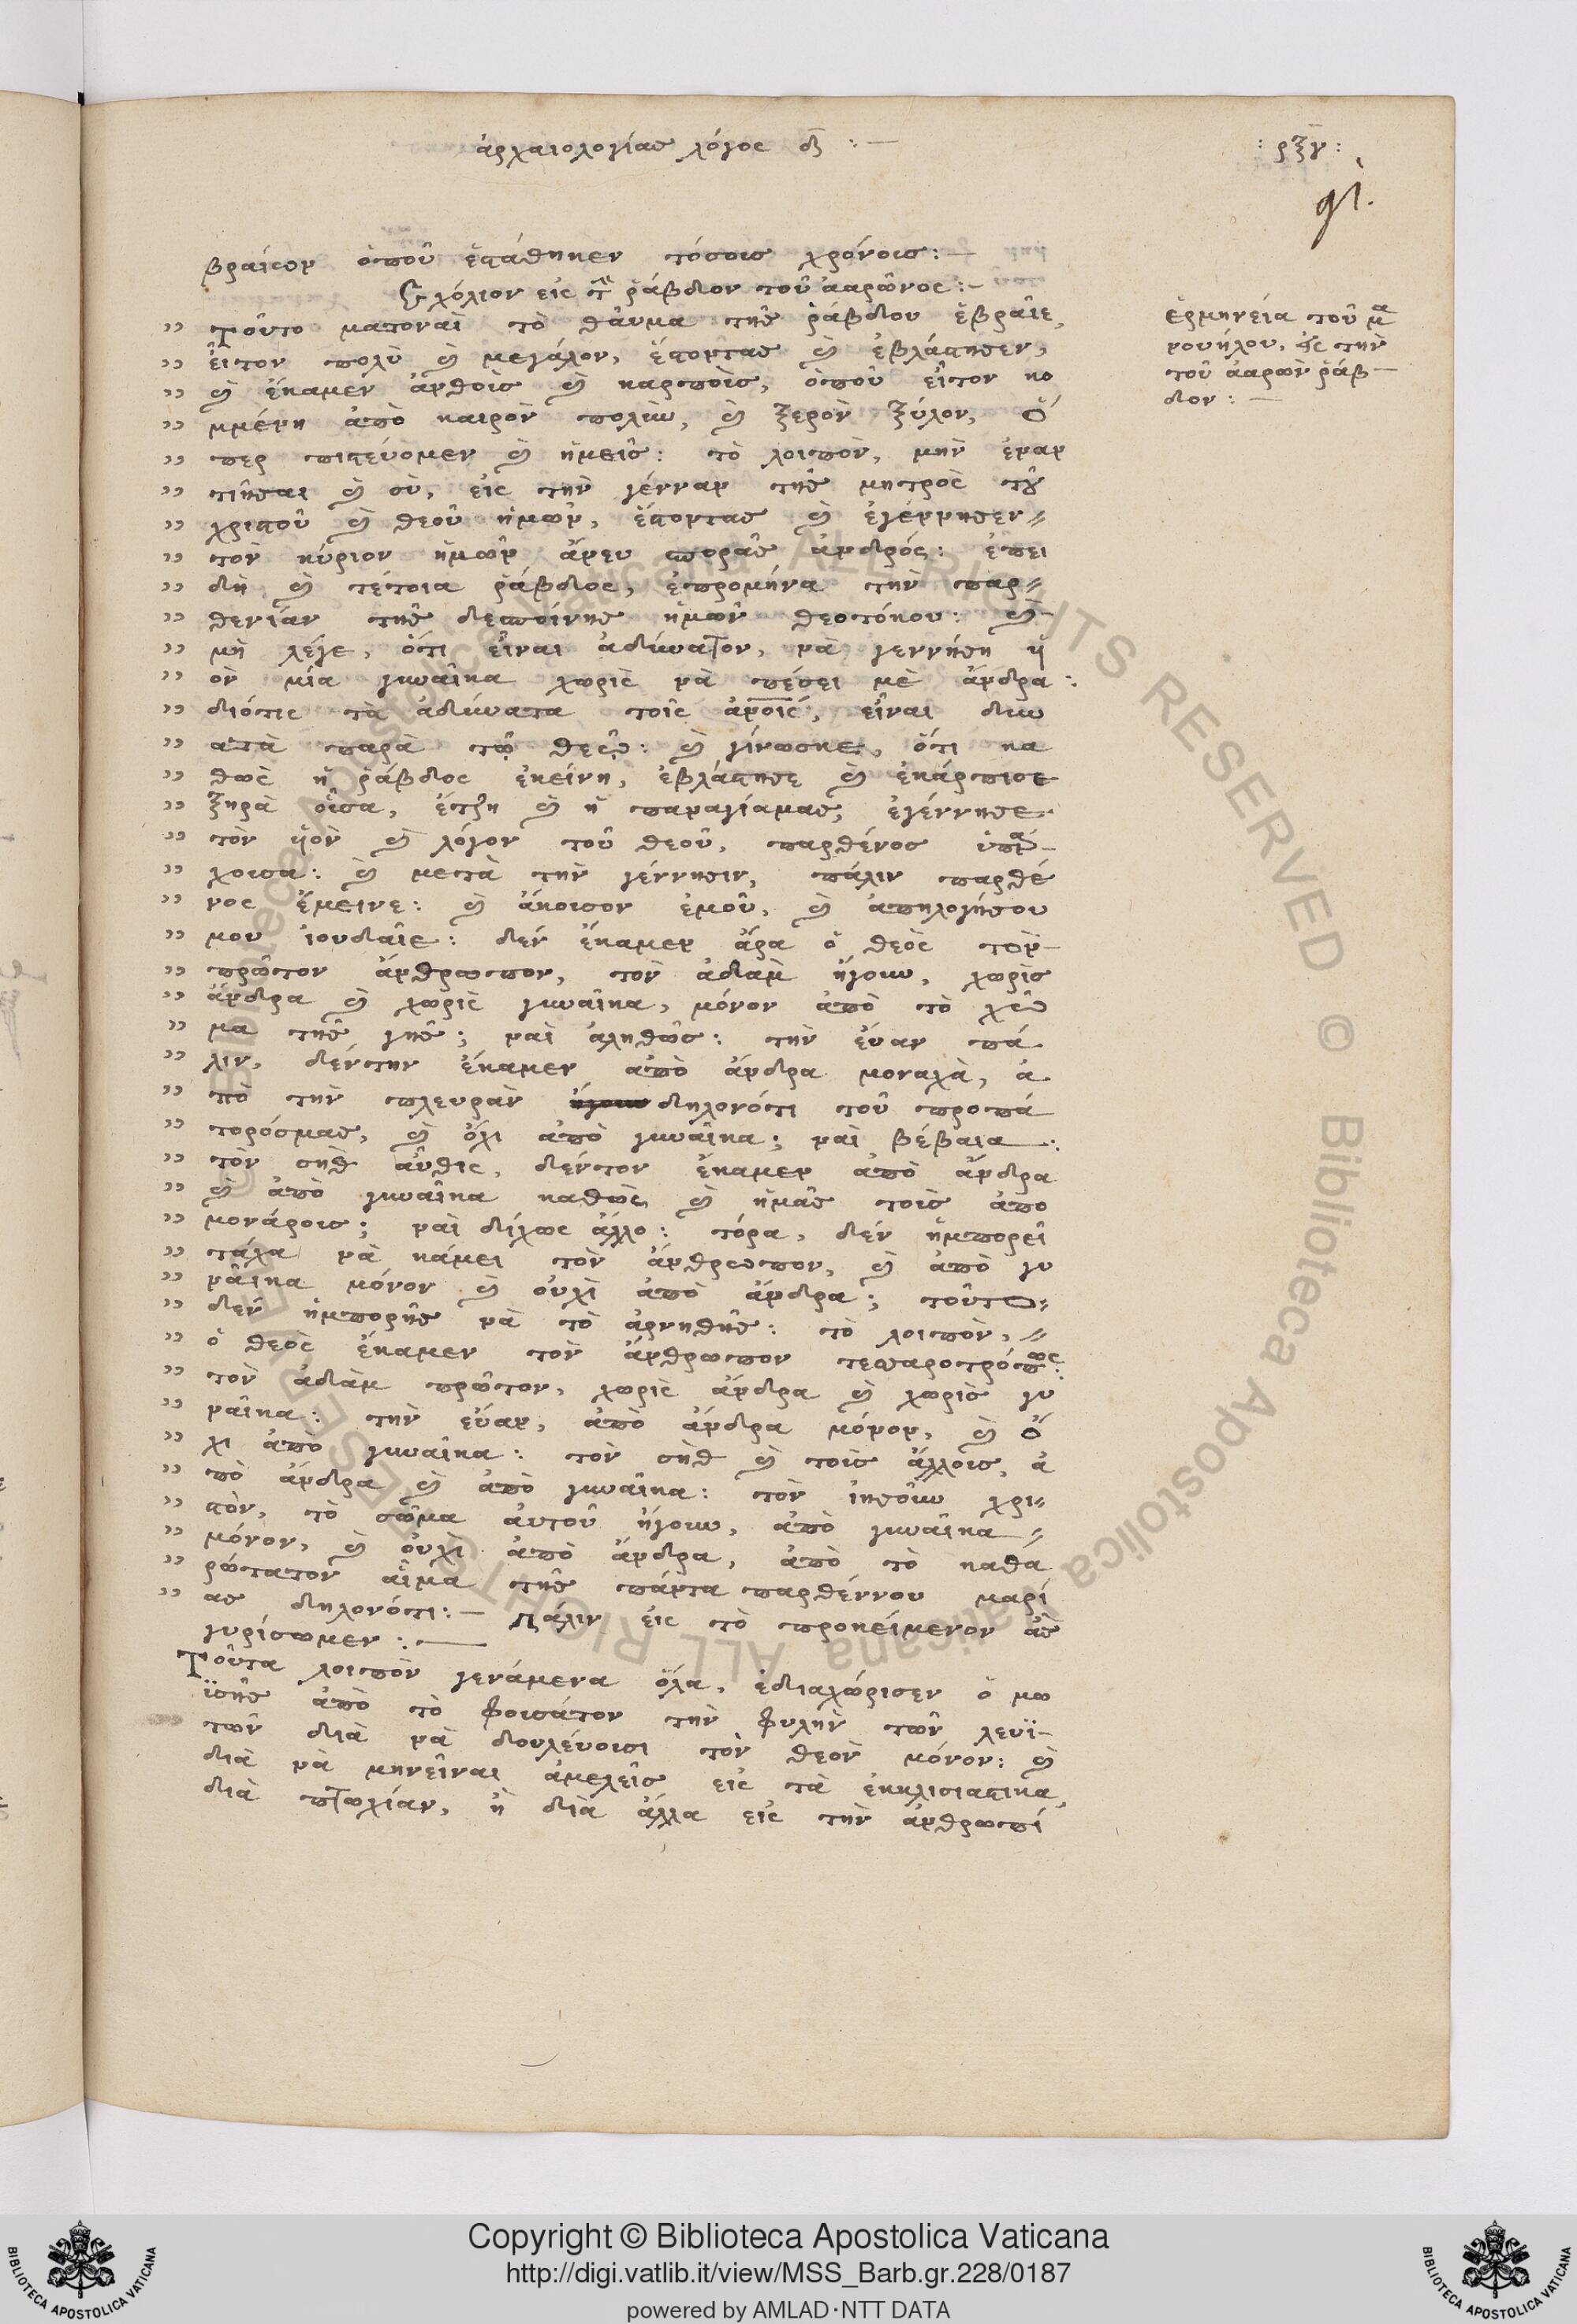 ἀρχαιολογίας λόγος δ :—
: ρξγ :
βραίων ὁποῦ ἐστάθηκεν τόσοις χρόνοις:—
Σχόλιον εἰς τὴν ῥάβδον τοῦ ἀαρῶνος:—
ἑρμηνεία τοῦ μα
νουήλου, εἰς τὴν
τοῦ ἀαρὼν ῥάβ—
δον :—
,, Τοῦτο ματοναὶ τὸ θαῦμα τῆς ῥάβδου ἑβραῖε,
,, εἶτον πολὺ καὶ μεγάλον, ἔστοντας καὶ ἐβλάστησεν,
,, καὶ ἔκαμεν ἀνθοὶς καὶ καρποὶς, ὁποῦ εἶτον κο
,, μμένη ἀπὸ καιρὸν πολὺν, καὶ ξερὸν ξύλον, ὅ
,, περ πιστεύομεν καὶ ἡμεῖς: τὸ λοιπὸν, μὴν ἐναν
,, τιῆσαι καὶ σὺ, εἰς τὴν γένναν τῆς μητρὸς τοῦ
,, χριστοῦ καὶ θεοῦ ἡμῶν, ἔστοντας καὶ ἐγέννησεν
,, τὸν κύριον ἡμῶν ἄνευ σπορᾶς ἀνδρός: ἐπει
,, δὴ καὶ τέτοια ῥάβδος, ἐπρομήνα τὴν παρ
,, θενίαν τῆς δεσποίνης ἡμῶν θεοτόκου: καὶ
,, μὴ λέγε, ὅτι εἶναι ἀδύνατον, νὰ γεννήση ὑ
,, ὸν μία γυναῖκα χωρὶς νὰ πέσει μὲ ἄνδρα:
,, διότις τὰ ἀδύνατα τοῖς ἀνοις, εἶναι δυν
,, ατὰ παρὰ τῷ θεῷ: καὶ γίνωσκε, ὅτι κα
,, θὼς ἡ ῥάβδος ἐκείνη, ἐβλάστησε καὶ ἐκάρπισε
,, ξηρὰ οἶσα, ἔτζη καὶ ἡ παναγίαμας, ἐγέννησε
,, τὸν ὑὸν καὶ λόγον τοῦ θεοῦ, παρθένος ὑπάρ
,, χοισα: καὶ μετὰ τὴν γέννησιν, πάλιν παρθέ
,, νος ἔμεινε: καὶ ἄκοισον ἐμοῦ, καὶ ἀπηλογήσου
,, μου ἰουδαῖε: δεν ἔκαμεν ἄρα ὁ θεὸς τὸν
,, πρῶτον ἄνθρωπον, τὸν ἀδὰμ ἤγουν, χωρὶς
,, ἄνδρα καὶ χωρὶς γυναῖκα, μόνον ἀπὸ τὸ χῶ
,, μα τῆς γῆς; ναὶ ἀληθῶς: τὴν εὔαν πά
,, λιν, δέντην ἔκαμεν ἀπὸ ἄνδρα μοναχὰ, ἀ
,, πὸ τὴν πλευρὰν δηλονότι τοῦ προπά
,, τορόσμας, καὶ ὄχι ἀπὸ γυναῖκα; ναὶ βέβαια:
,, τὸν σὴθ αὖθις, δέντον ἔκαμεν ἀπὸ ἄνδρα
,, καὶ ἀπὸ γυναῖκα καθὼς καὶ ἡμᾶς τοὶς ἀπο
,, μονάροις; ναὶ δίχως ἄλλο: τόρα, δὲν ἠμπορεῖ
,, τάχα νὰ κάμει τὸν ἄνθρωπον, καὶ ἀπὸ γυ
,, ναῖκα μόνον καὶ οὐχὶ ἀπὸ ἄνδρα; τοῦτο
,, δὲν ἠμπορῆς νὰ τὸ ἀρνηθῆς: τὸ λοιπὸν,
,, ὁ θεὸς ἔκαμεν τὸν ἄνθρωπον τεσσαροτρόπως:
,, τὸν ἀδὰμ πρῶτον, χωρὶς ἄνδρα καὶ χωρὶς γυ
,, ναῖκα: τὴν εὔαν, ἀπὸ ἄνδρα μόνον, καὶ ὄ
,, χι ἀπὸ γυναῖκα: τὸν σὴθ καὶ τοὶς ἄλλοις, ἀ
,, πὸ ἄνδρα καὶ ἀπὸ γυναῖκα: τὸν ἰησοῦν χρι
,, στὸν, τὸ σῶμα αὐτοῦ ἤγουν, ἀπὸ γυναῖκα
,, μόνον, καὶ οὐχὶ ἀπὸ ἄνδρα, ἀπὸ τὸ καθα
,, ρώτατον αἷμα τῆς πάντα παρθέννου μαρί
,, ας δηλονότι:— Πάλιν εἰς τὸ προκείμενον ἂς
γυρίσωμεν :—
Τοῦτα λοιπὸν γενάμενα ὅλα, ἐδιαχώρισεν ὁ μω
ϋσῆς ἀπὸ τὸ φοισάτον τὴν φυλὴν τῶν λευϊ—
τῶν διὰ νὰ δουλέυοισι τὸν θεὸν μόνον: καὶ
διὰ νὰ μηνεῖναι ἀμελεῖς εἰς τὰ ἐκκλισιαστικὰ,
διὰ πτωχίαν, ἢ διὰ ἄλλα εἰς τὴν ἀνθρωπί
Copyright © Biblioteca Apostolica Vaticana
http://digi.vatlib.it/view/MSS_Barb.gr.228/0187
powered by AMLAD·NTT DATA